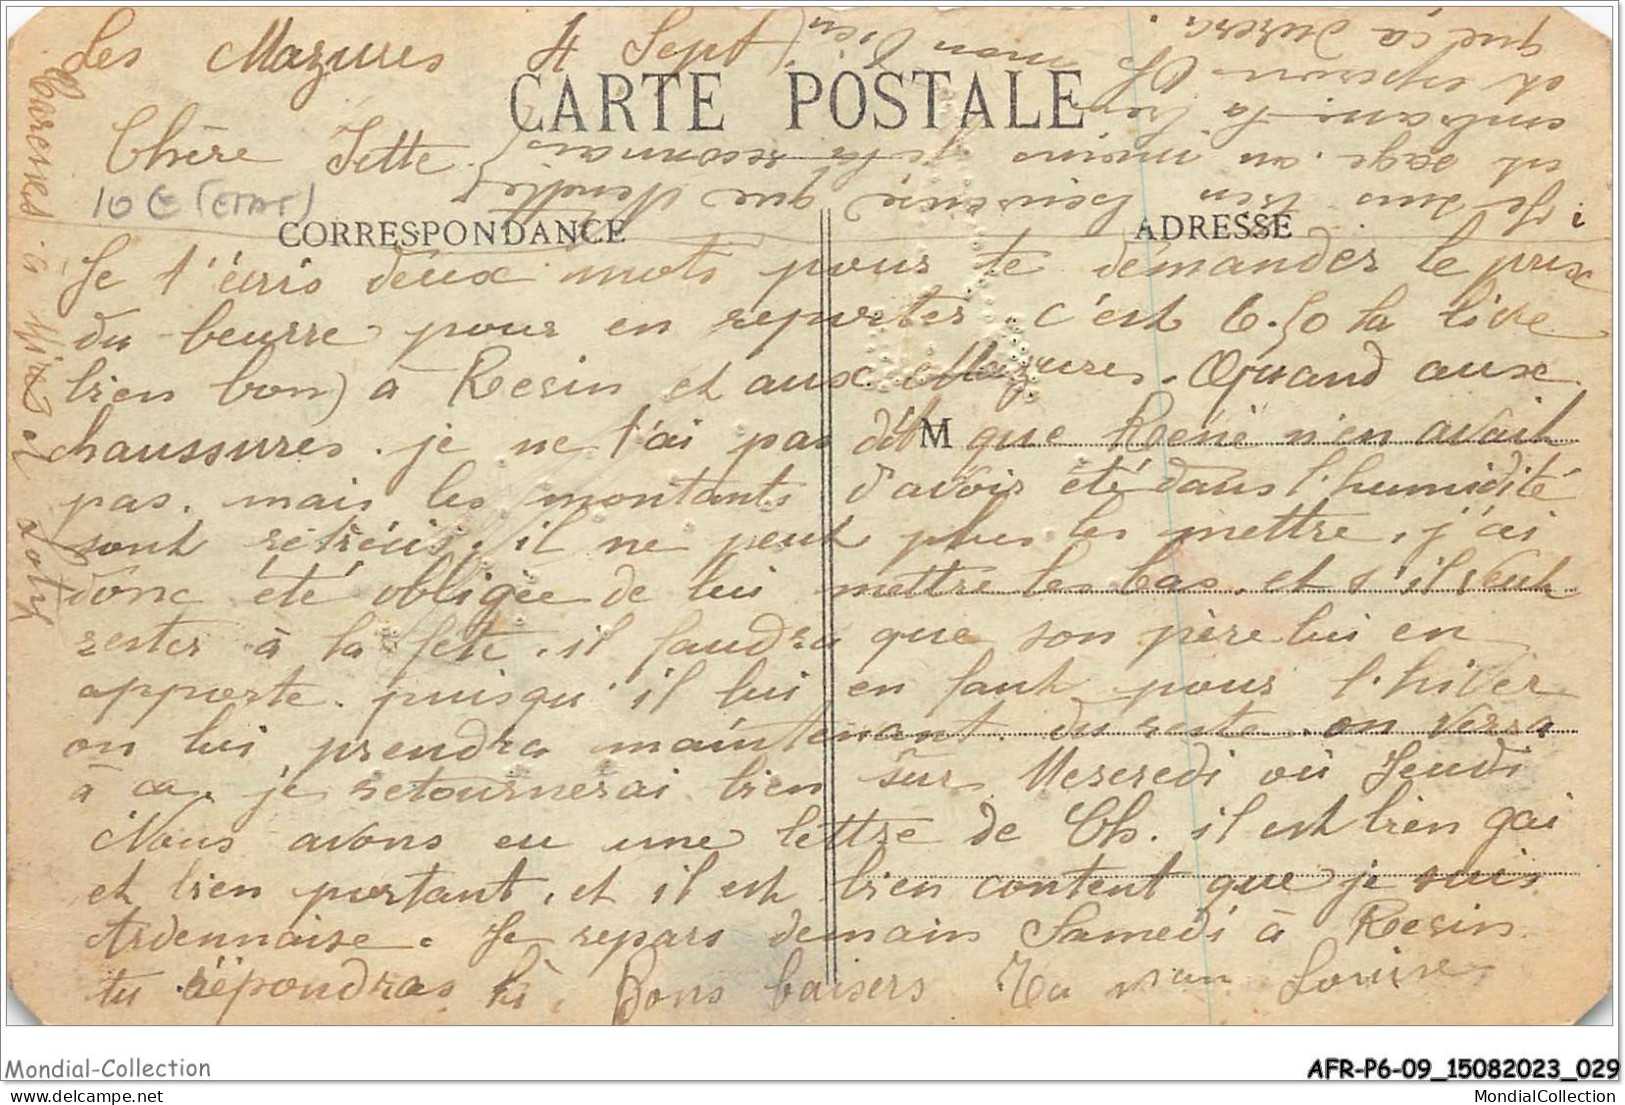 Les Mazures 4 Sept
CARTE POSTALE
Chère Jette
10 € (ETAT)
CORRESPONDANCE
ADRESSE
Je t'écris deux mots pour te demander le prix
du beurre pour en reporter. c'est 6.50 la livre
bien bon) à Resin et aux Mazures. Quand aux
chaussures. je ne t'ai pas dit que René n'en avait
M
pas. mais les montants d'avoir été dans l'humidité
sont rétrécis. il ne peut plus les mettre. j'ai
donc été obligée de lui mettre les bas. et s'il veut
rester à la fête. il faudra que son père lui en
apporte. puisqu'il lui en faut pour l'hiver
on lui prendra maintenant. du reste. on verra
à ca. je retournerai bien sûr Mercredi où Jeudi
Nous avons eu une lettre de Ch. il est bien gai
et bien portant. et il est bien content que je suis
Ardennaise. Je repars demain Samedi à Resin
tu répondras là. Bons baisers Ta Louise
Je suis bien heureuse que
est sage. au moins je la reconnais
embrasse la bien
et espérons mon bien
que ça durera.
Caresses à
Mondial-Collection
AFR-P6-09_15082023_029
MondialCollection.com